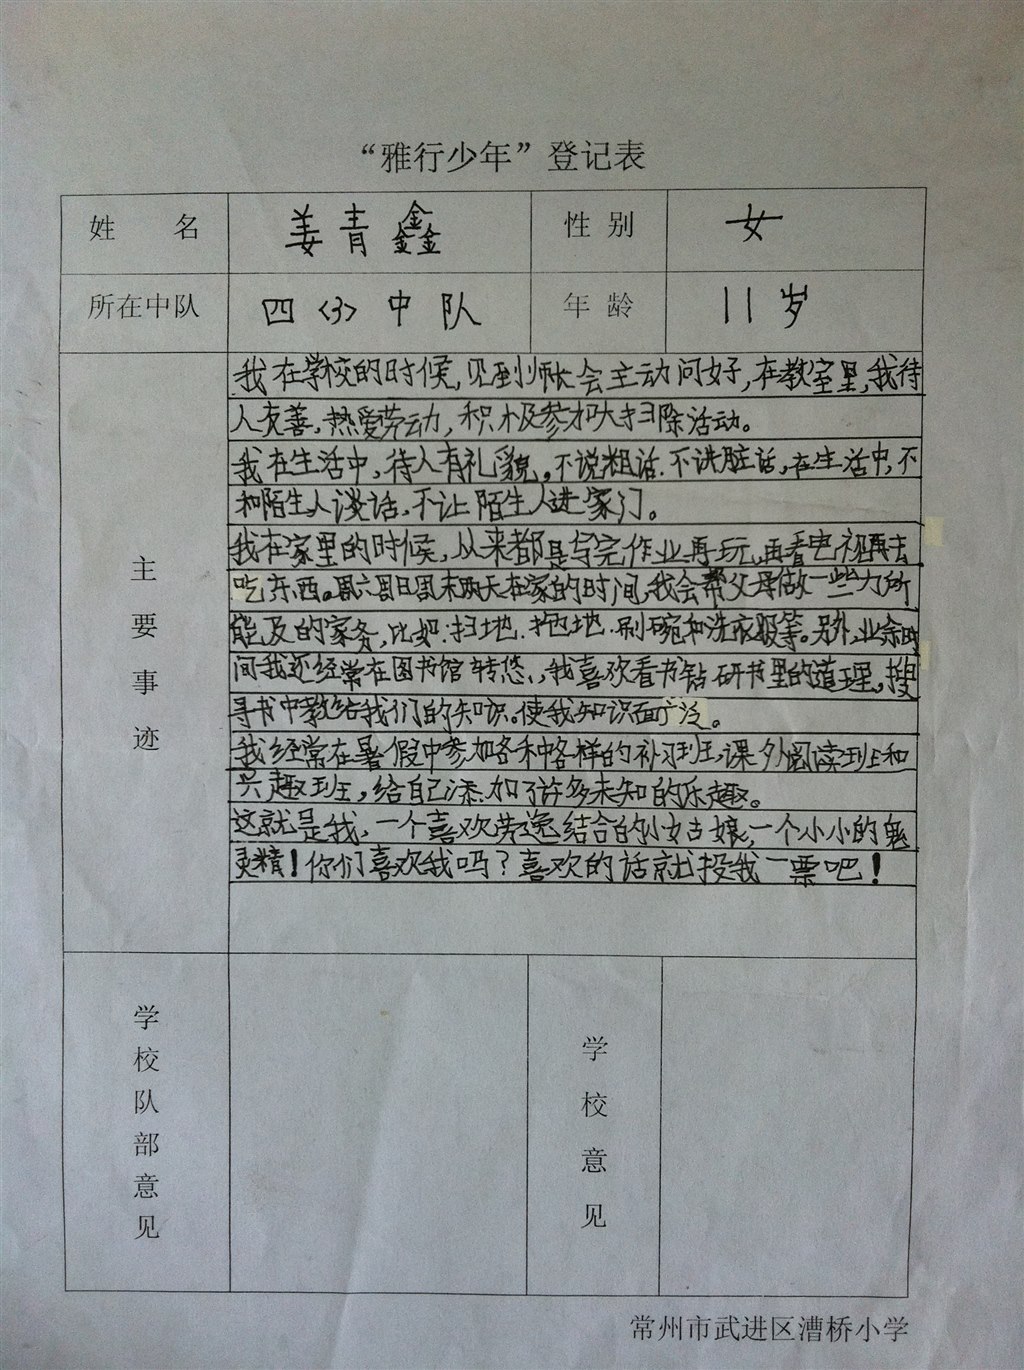 “雅行少年”登记表
姓 名 姜青鑫 性 别 女
所在中队 四〈3〉中队 年 龄 11岁
主要事迹
我在学校的时候,见到师长会主动问好,在教室里,我待
人友善,热爱劳动,积极参加大扫除活动。
我在生活中,待人有礼貌。不说粗话.不讲脏话,在生活中,不
和陌生人谈话,不让陌生人进家门。
我在家里的时候,从来都是写完作业再玩,再看电视再去
吃东西。周六周日周末两天在家的时间,我会帮父母做一些力所
能及的家务,比如:扫地.拖地.刷碗和洗衣服等。另外,业余时
间我还经常在图书馆转悠,,我喜欢看书钻研书里的道理,搜
寻书中教给我们的知识。使我知识面广泛。
我经常在暑假中参加各种各样的补习班,课外阅读班和
兴趣班,给自己添加了许多未知的乐趣。
这就是我,一个喜欢劳逸结合的小姑娘,一个小小的鬼
灵精!你们喜欢我吗?喜欢的话就投我一票吧!
学校队部意见
学校意见
常州市武进区漕桥小学